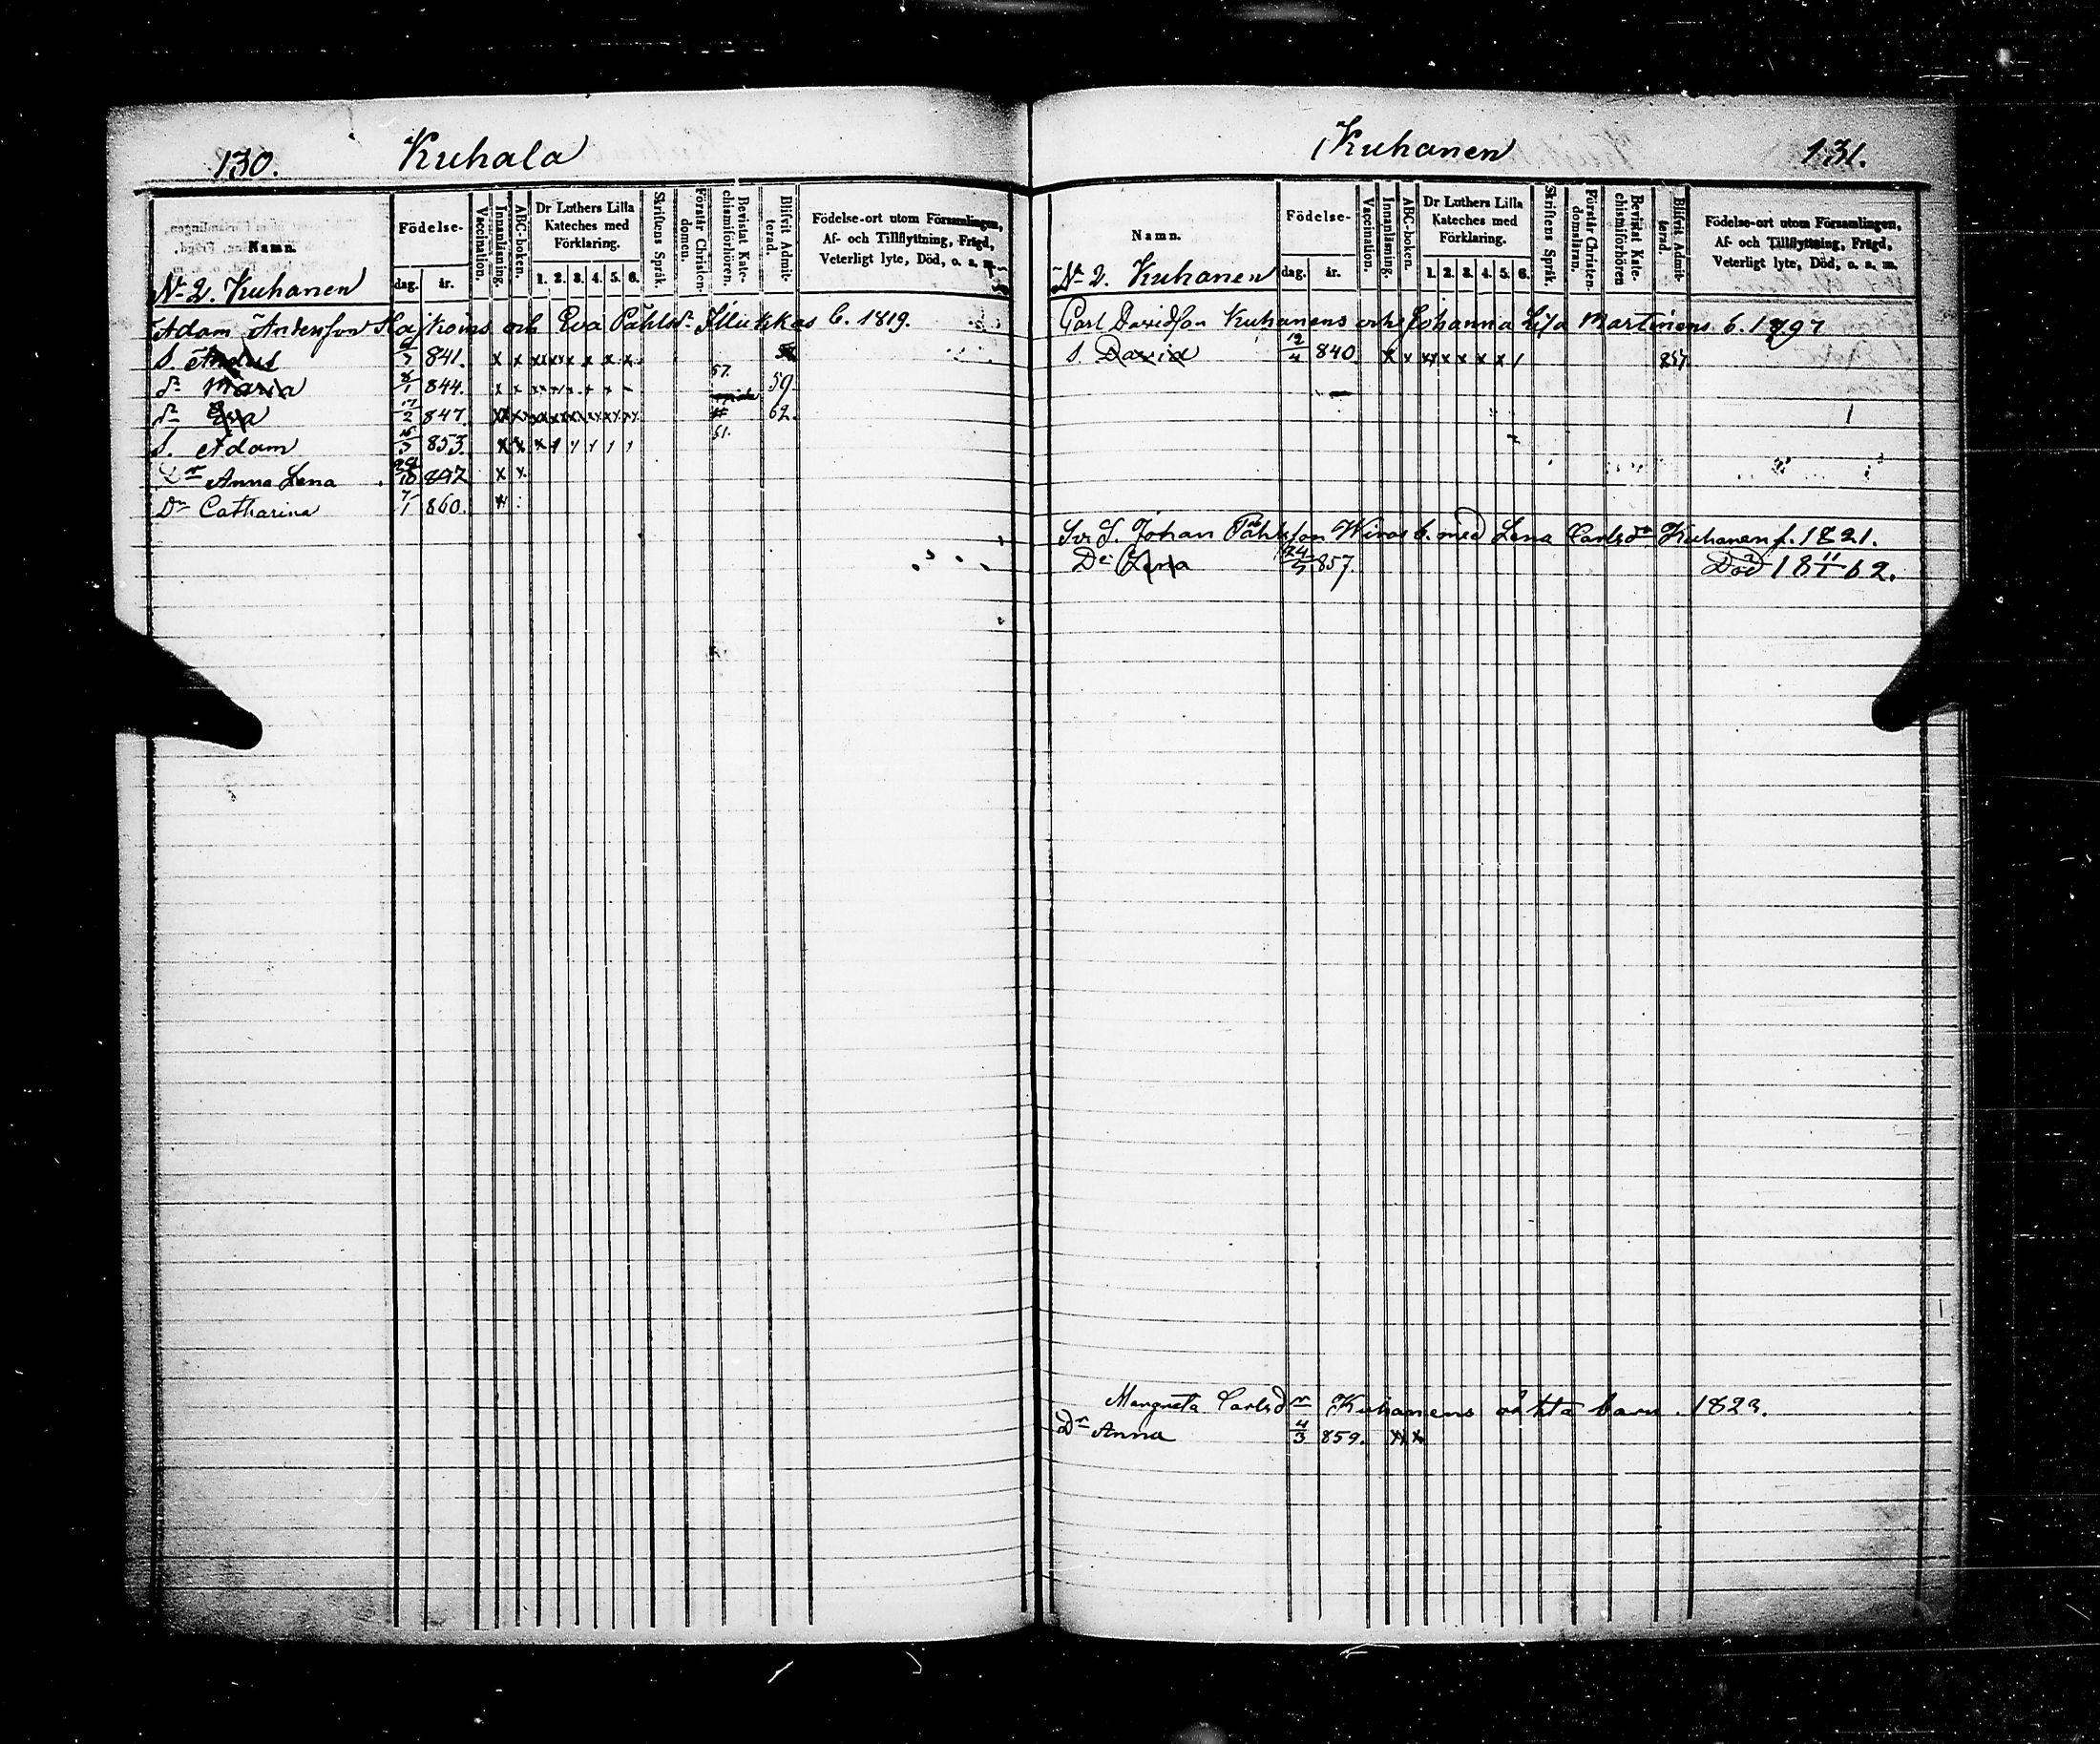 130. Kuhala
Namn. Födelse- dag. år. Vaccination. Innanläsning. ABC-boken. Dr Luthers Lilla Kateches med Förklaring. 1. 2. 3. 4. 5. 6. Skriftens Språk. Förstår Christendomen. Bevistat Katechismiförhören. Blifvit Admitterad. Födelse-ort utom Församlingen, Af- och Tillflyttning, Frägd, Veterligt lyte, Död, o. s. m.
N 2. Kuhanen
Adam Andersson och Eva Påhlsd. b. 1819.
S. 841. x x x x x x x x
dr Maria 8/1 844. x x x x x x x 57. 59
dr Eva 17/2 847. 62.
S. Adam 853. x x x 51.
Dr Anna Lena x x
Dr Catharina 7/1 860.
Kuhanen 131.
Namn. Födelse- dag. år. Vaccination. Innanläsning. ABC-boken. Dr Luthers Lilla Kateches med Förklaring. 1. 2. 3. 4. 5. 6. Skriftens Språk. Förstår Christendomsläran. Bevistat Katechismiförhören Blifvit Admitterad. Födelse-ort utom Församlingen, Af- och Tillflyttning, Frägd, Veterligt lyte, Död, o. s. m.
N 2. Kuhanen
Carl Davidson Kuhanens och Johanna Lisa Martinens b. 1797
S. David 12/4 840 x x x x x x x 857
Johan Påhlsson b. med Lena Carlsdr Kuhanen f. 1821.
Dr Lena 24/5 857. Död 18 11/1 62.
Margreta Carlsdr Kuhanens oäkta barn. 1823.
Dr Anna 4/3 859. x x